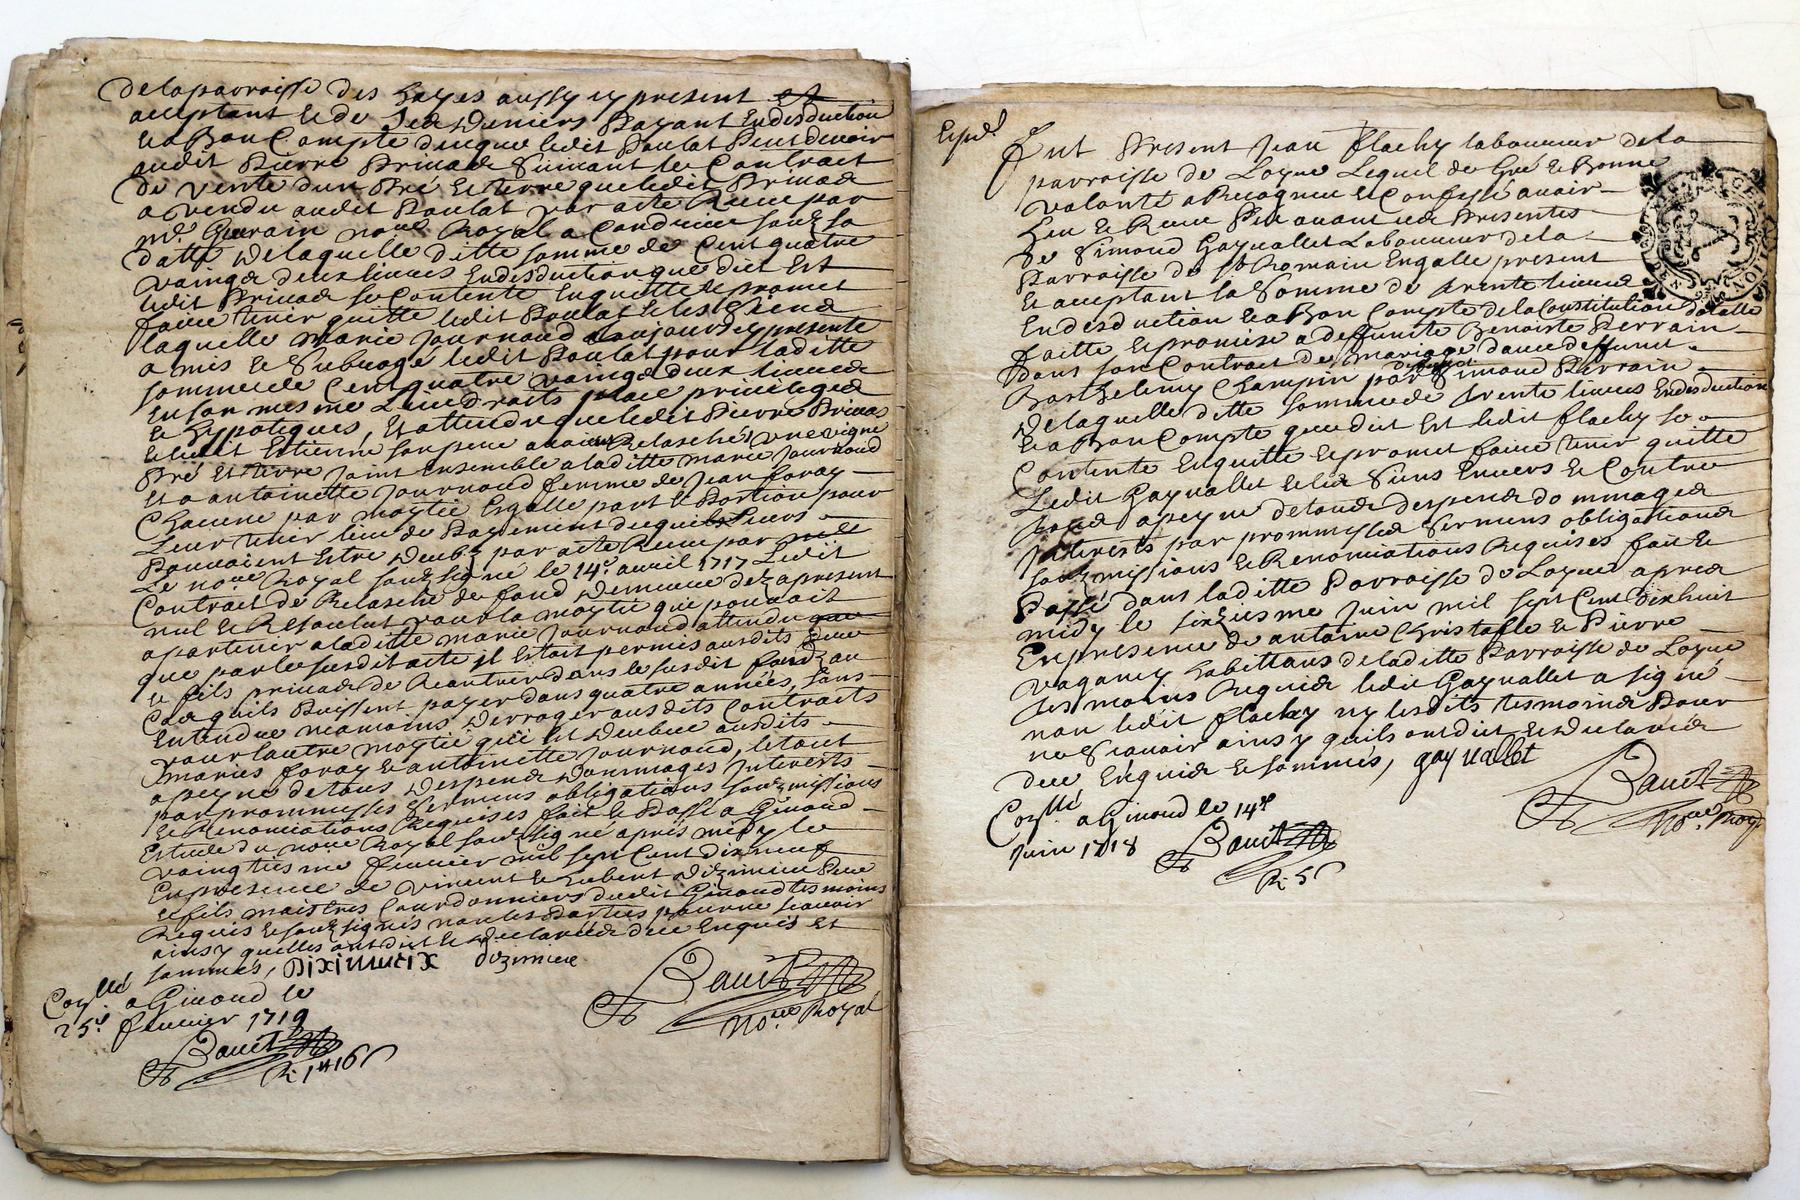 de la parroisse des hayes aussy cy present et
acceptant et de ses deniers payant en desduction
et a Bon Compte de ce que ledit Poulat Peut devoir
audit Pierre Prinad suivant le Contract
de vente d'un Pré et terre que ledit Prinad
a vendu audit Poulat par acte Receu par
me. Guerain nore. Royal a Condrieu sous sa
datte de laquelle ditte somme de Cent quatre
vaingt deux livres en desduction que dict Est
ledit Prinad se Contente En quitte et promet
faire tenir quitte ledit Poulat et les siens
laquelle marie Journoud cy presente
a mis et subrogé ledit Poulat pour laditte
somme de Cent quatre vaingt deux livres
en son mesme Lieu droits place privileges
et hypoteques, Et attendu que ledit Pierre Prinad
et Estienne son pere avaient Relasché une vigne
Pré Et terre Joint ensemble a laditte marie Journoud
Et a antoinette Journoud femme de Jean foray
Chacune par moytié Esgalle part et Portion pour
Leur tenir lieu de Payement de ce
Pouvaient Estre par acte Receu par
Le nore Royal souzsigné le 14e. avril 1717 Ledit
Contract de Relasché de fond demeure dez a present
nul et Resoulut pour la moytié qui pouvait
apartenir a laditte marie Journoud attendu que
que par le susdit acte il Estait permis ausdits pere
et fils prinad de Reantrer dans le susdit fondz au
Cas quils Puissent payer dans quatre années, sans
Entendre neamoins derroger ausdits Contracts
pour lautre moytié qui est deube ausdits
maries foray et antoinette Journoud, le tout
a peyne de tous despends dommages Interests
par prommesses sermens obligations souzmissions
et Renonciations Requises fait et Passé a Givord
Estude du nore Royal souzsigné après midy le
vaingtiesme feuvrier mil sept Cent dix neuf
En presence de vincent et hubert dizimieu Pere
et fils maistres Courdonniers dudit Givord tesmoins
Requis et souzsignés non les Parties pour ne scavoir
ainsy quelles ont dict et declarées de ce Enquis Et
sommés, DIXIMIEUX dizimieu
Bauit
nore. Royal
Coñllé a Givord le
25e. feuvrier 1719
Bauit
R. 1# 16s
Fut Present Jean flachy laboureur de la
parroisse de Loyre Lequel de Gré et Bonne
volonté a Recogneu et Confessé avoir
Heu et Receu Peu avant ces Presentes
de Simond Gayvallet Laboureur de la
Parroisse de st Romain En galle present
Et acceptant la Somme de Trente livres
En desduction et a Bon Compte de la Constitution dotalle
faitte et promise a deffunte Benoiste Perrain
dans son Contract de mariage d'avec deffunt
Barthelemy Champin par Simond Perrain
de laquelle ditte somme de Trente livres En desduction
et a Bon Compte que dit Est ledit flachy se
Contente En quitte et promet faire tenir quitte
Ledit Gayvallet et les Siens Envers et Contre
Tous a peyne de tous despends dommages
Interests par prommesses Sermens obligations
souzmissions et Renonciations Requises fait et
Passé dans laditte Parroisse de Loyre apres
midy le siziesme Juin mil sept Cent dix huit
En presence de antoine Christofle et Pierre
vaganey habittans de laditte Parroisse de Loyre
tesmoins Requis ledit Gayvallet a signé
non ledit flachy ny lesdits tesmoins Pour
ne Scavoir ainsy quils ont dit et declarés
de ce Enquis et sommés, gayvallet
Bauit
nore. Royal
Coñllé a Givord le 14e
Juin 1718
Bauit
R. 5s